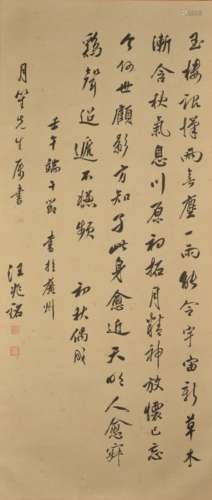 玉樓兩無塵一雨能令宇宙新草木
漸含秋氣息川原初拓月精神放懷已忘
今何世顧影方知此身愈近天明人愈寂
雞聲迢遞不嫌頻 初秋偶成
壬午端午節書於廣州
月笙先生屬書
汪兆銘